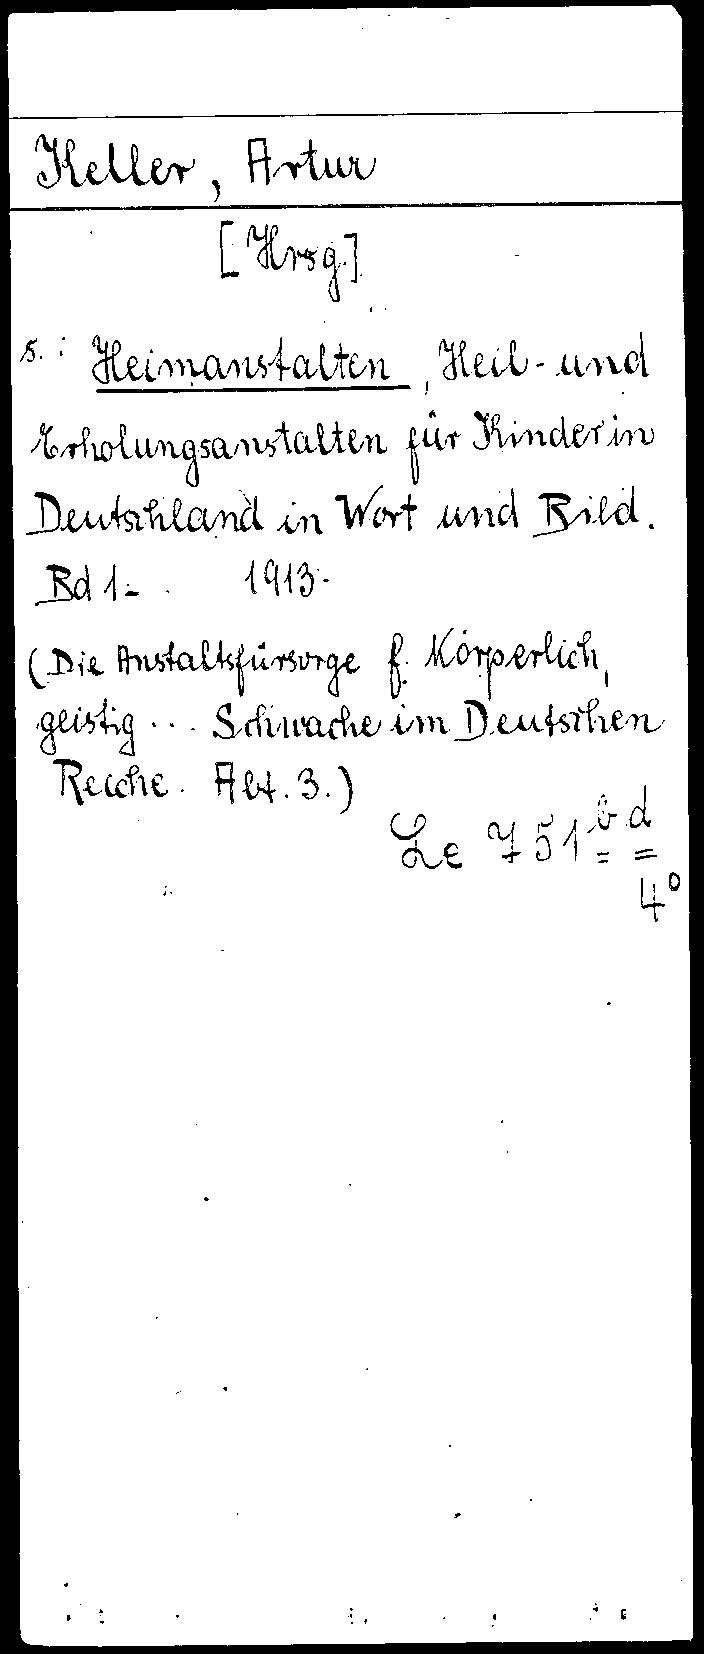 Keller, Artur
[Hrsg.]
s.: Heimanstalten, Heil- und
Erholungsanstalten für Kinder in
Deutschland in Wort und Bild.
Bd 1- . 1913-
(Die Anstaltsfürsorge f. Körperlich,
geistig ... Schwache im Deutschen
Reiche. Abt. 3.)
Le 751 b d
4°